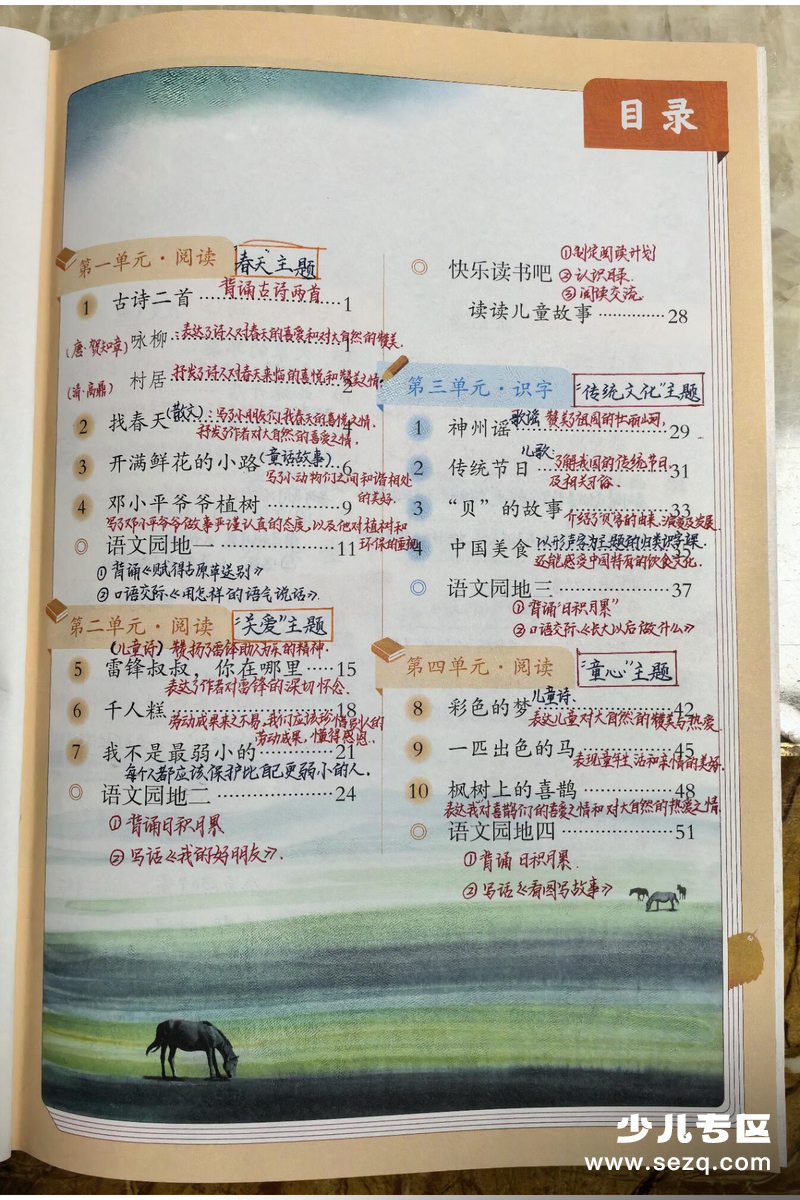 目录
第一单元·阅读 春天主题
1 古诗二首 背诵古诗两首 1
(唐·贺知章) 咏柳：表达了诗人对春天的喜爱和对大自然的赞美. 1
(清·高鼎) 村居 抒发了诗人对春天来临的喜悦和赞美之情 2
2 找春天(散文)：写了小朋友们找春天的喜悦之情. 4
抒发了作者对大自然的喜爱之情.
3 开满鲜花的小路(童话故事) 6
写了小动物们之间和谐相处
的美好.
4 邓小平爷爷植树 9
写了邓小平爷爷做事严谨认真的态度,以及他对植树和
环保的重视
语文园地一 11
①背诵《赋得古原草送别》
②口语交际《用怎样的语气说话》.
第二单元·阅读 “关爱”主题
(儿童诗) 赞扬了雷锋助人为乐的精神.
5 雷锋叔叔，你在哪里 15
表达了作者对雷锋的深切怀念.
6 千人糕 18
劳动成果来之不易,我们应该珍惜别人的
劳动成果，懂得感恩.
7 我不是最弱小的 21
每个人都应该保护比自己更弱小的人.
语文园地二 24
①背诵日积月累
②写话《我的好朋友》.
快乐读书吧
①制定阅读计划
②认识目录.
③阅读交流.
读读儿童故事 28
第三单元·识字 “传统文化”主题
1 神州谣 歌谣 赞美了祖国的壮丽山河, 29
2 传统节日 儿歌. 了解我国的传统节日, 31
及相关习俗.
3 “贝”的故事 33
介绍了贝字的由来、演变及发展
4 中国美食 以形声字为主题的归类识字课.
还能感受中国特有的饮食文化.
语文园地三 37
①背诵“日积月累”
②口语交际《长大以后做什么》
第四单元·阅读 “童心”主题
8 彩色的梦 儿童诗. 42
表达儿童对大自然的赞美与热爱.
9 一匹出色的马 45
表现童年生活和亲情的美好.
10 枫树上的喜鹊 48
表达我对喜鹊们的喜爱之情和对大自然的热爱之情.
语文园地四 51
①背诵日积月累.
②写话《看图写故事》
少儿专区
www.sezq.com